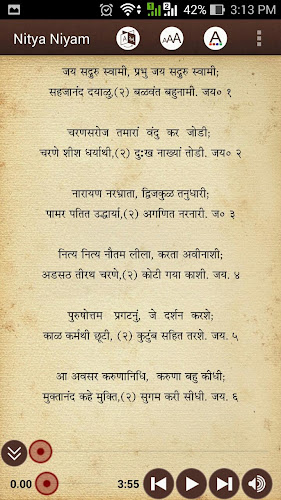 3:13 PM
Nitya Niyam
A
AAA
A
जय सद्गुरु स्वामी, प्रभु जय सद्गुरु स्वामी;
सहजानंद दयाळु,(२) बळवंत बहुनामी. जय० १
चरणसरोज तमारां वंदु कर जोडी;
चरणे शीश धर्याथी,(२) दुःख नाख्यां तोडी. जय० २
नारायण नरभ्राता, द्विजकुळ तनुधारी;
पामर पतित उद्धार्या,(२) अगणित नरनारी. ज० ३
नित्य नित्य नौतम लीला, करता अवीनाशी;
अडसठ तीरथ चरणे,(२) कोटी गया काशी. जय. ४
पुरुषोत्तम प्रगटनुं, जे दर्शन करशे;
काळ कर्मथी छूटी, (२) कुटुंब सहित तरशे. जय. ५
आ अवसर करुणानिधि, करुणा बहु कीधी;
मुक्तानंद कहे मुक्ति,(२) सुगम करी सीधी. जय. ६
0.00 3:55